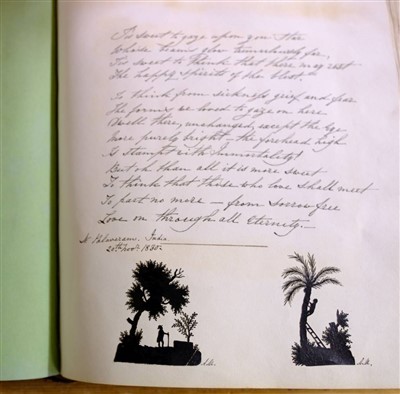 'Tis sweet to gaze upon yon Star
Whose beams glow tremulously far,
'Tis sweet to think that there may rest
The happy Spirits of the blest,
To think from sickness, grief and fear
The forms we loved to gaze on here
Dwell there, unchanged, except the Eye
More purely bright – the forehead high
Is stampt with Immortality!
But oh than all it is more sweet
To think that those who love shall meet
To part no more – from sorrow free
Love on through all Eternity. –
India
20th Novr. 1830.